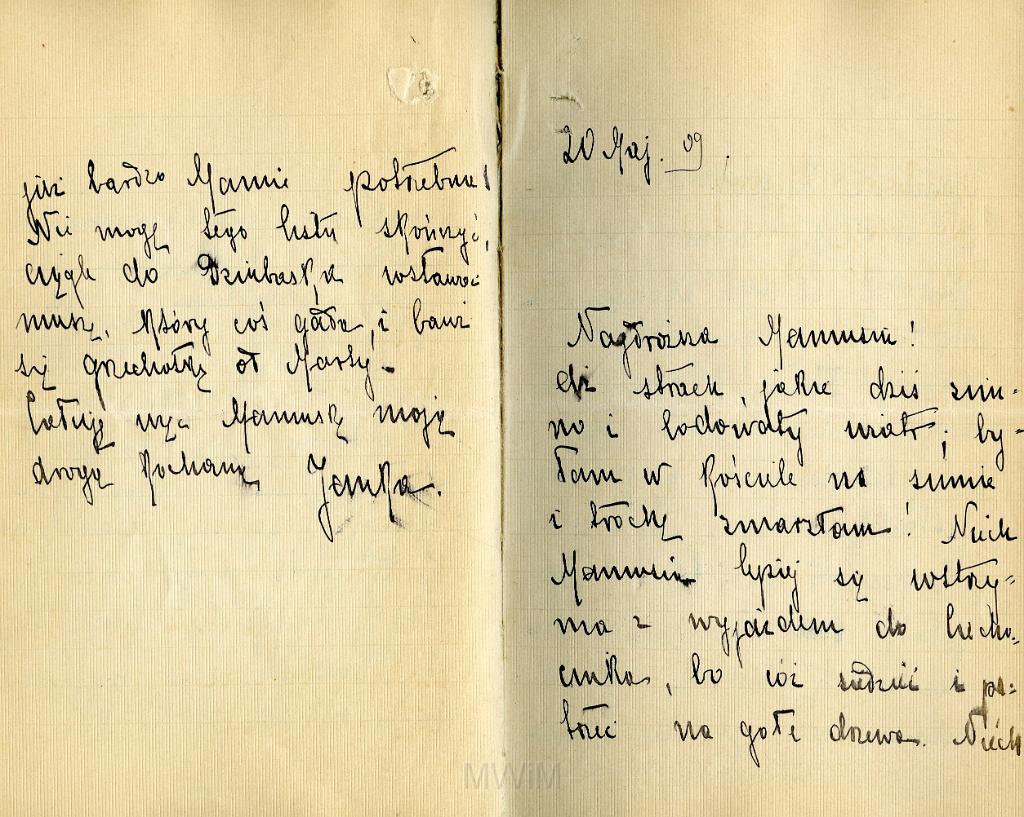 już bardzo Mamie potrzebne!
Nie mogę tego listu skończyć,
ciągle do Dziubaska wstawać
muszę, który coś gada, i bawi
się grzechotką od Marty.
Całuję rącz. Mamusię moją
drogą kochaną Jemka.
20 Maj. 09.
Najdroższa Mamusiu!
aż strach, jakie dziś zim-
no i lodowaty wiatr; by-
łam w kościele na sumie
i trochę zmarzłam! Niech
Mamusia lepiej się wstrzy-
ma z wyjazdem do Ciecho-
cinka, bo cóż siedzieć i pa-
trzeć na gołe drzewa. Niech
MWiM